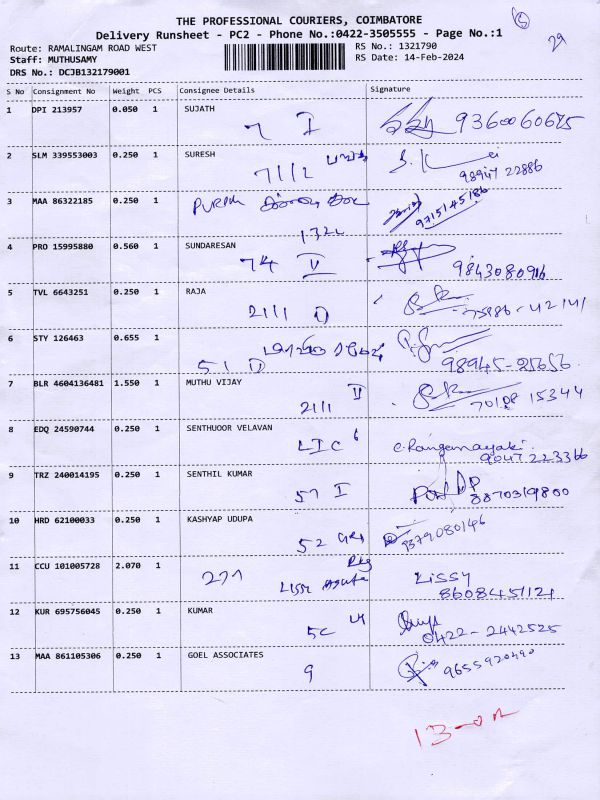 THE PROFESSIONAL COURIERS, COIMBATORE
Delivery Runsheet - PC2 - Phone No.:0422-3505555 - Page No.:1
Route: RAMALINGAM ROAD WEST RS No.: 1321790
Staff: MUTHUSAMY RS Date: 14-Feb-2024
DRS No.: DCJB132179001
29
S No Consignment No Weight PCS Consignee Details Signature
1 DPI 213957 0.050 1 SUJATH
7 I 9360060675
2 SLM 339553003 0.250 1 SURESH
71/2 98947 22886
3 MAA 86322185 0.250 1
9715145186
4 PRO 15995880 0.560 1 SUNDARESAN
74 II 9843080916
5 TVL 6643251 0.250 1 RAJA
75886-42141
6 STY 126463 0.655 1
51 D 98945-25656
7 BLR 4604136481 1.550 1 MUTHU VIJAY
II 70108 15344
8 EDQ 24590744 0.250 1 SENTHUOOR VELAVAN
LIC 6 C. Rangamayaki
9047223366
9 TRZ 240014195 0.250 1 SENTHIL KUMAR
57 I 8870319800
10 HRD 62100033 0.250 1 KASHYAP UDUPA
52 9379080146
11 CCU 101005728 2.070 1
271 Lissy
8608451121
12 KUR 695756045 0.250 1 KUMAR
5C 0422-2442525
13 MAA 861105306 0.250 1 GOEL ASSOCIATES
9 9655920490